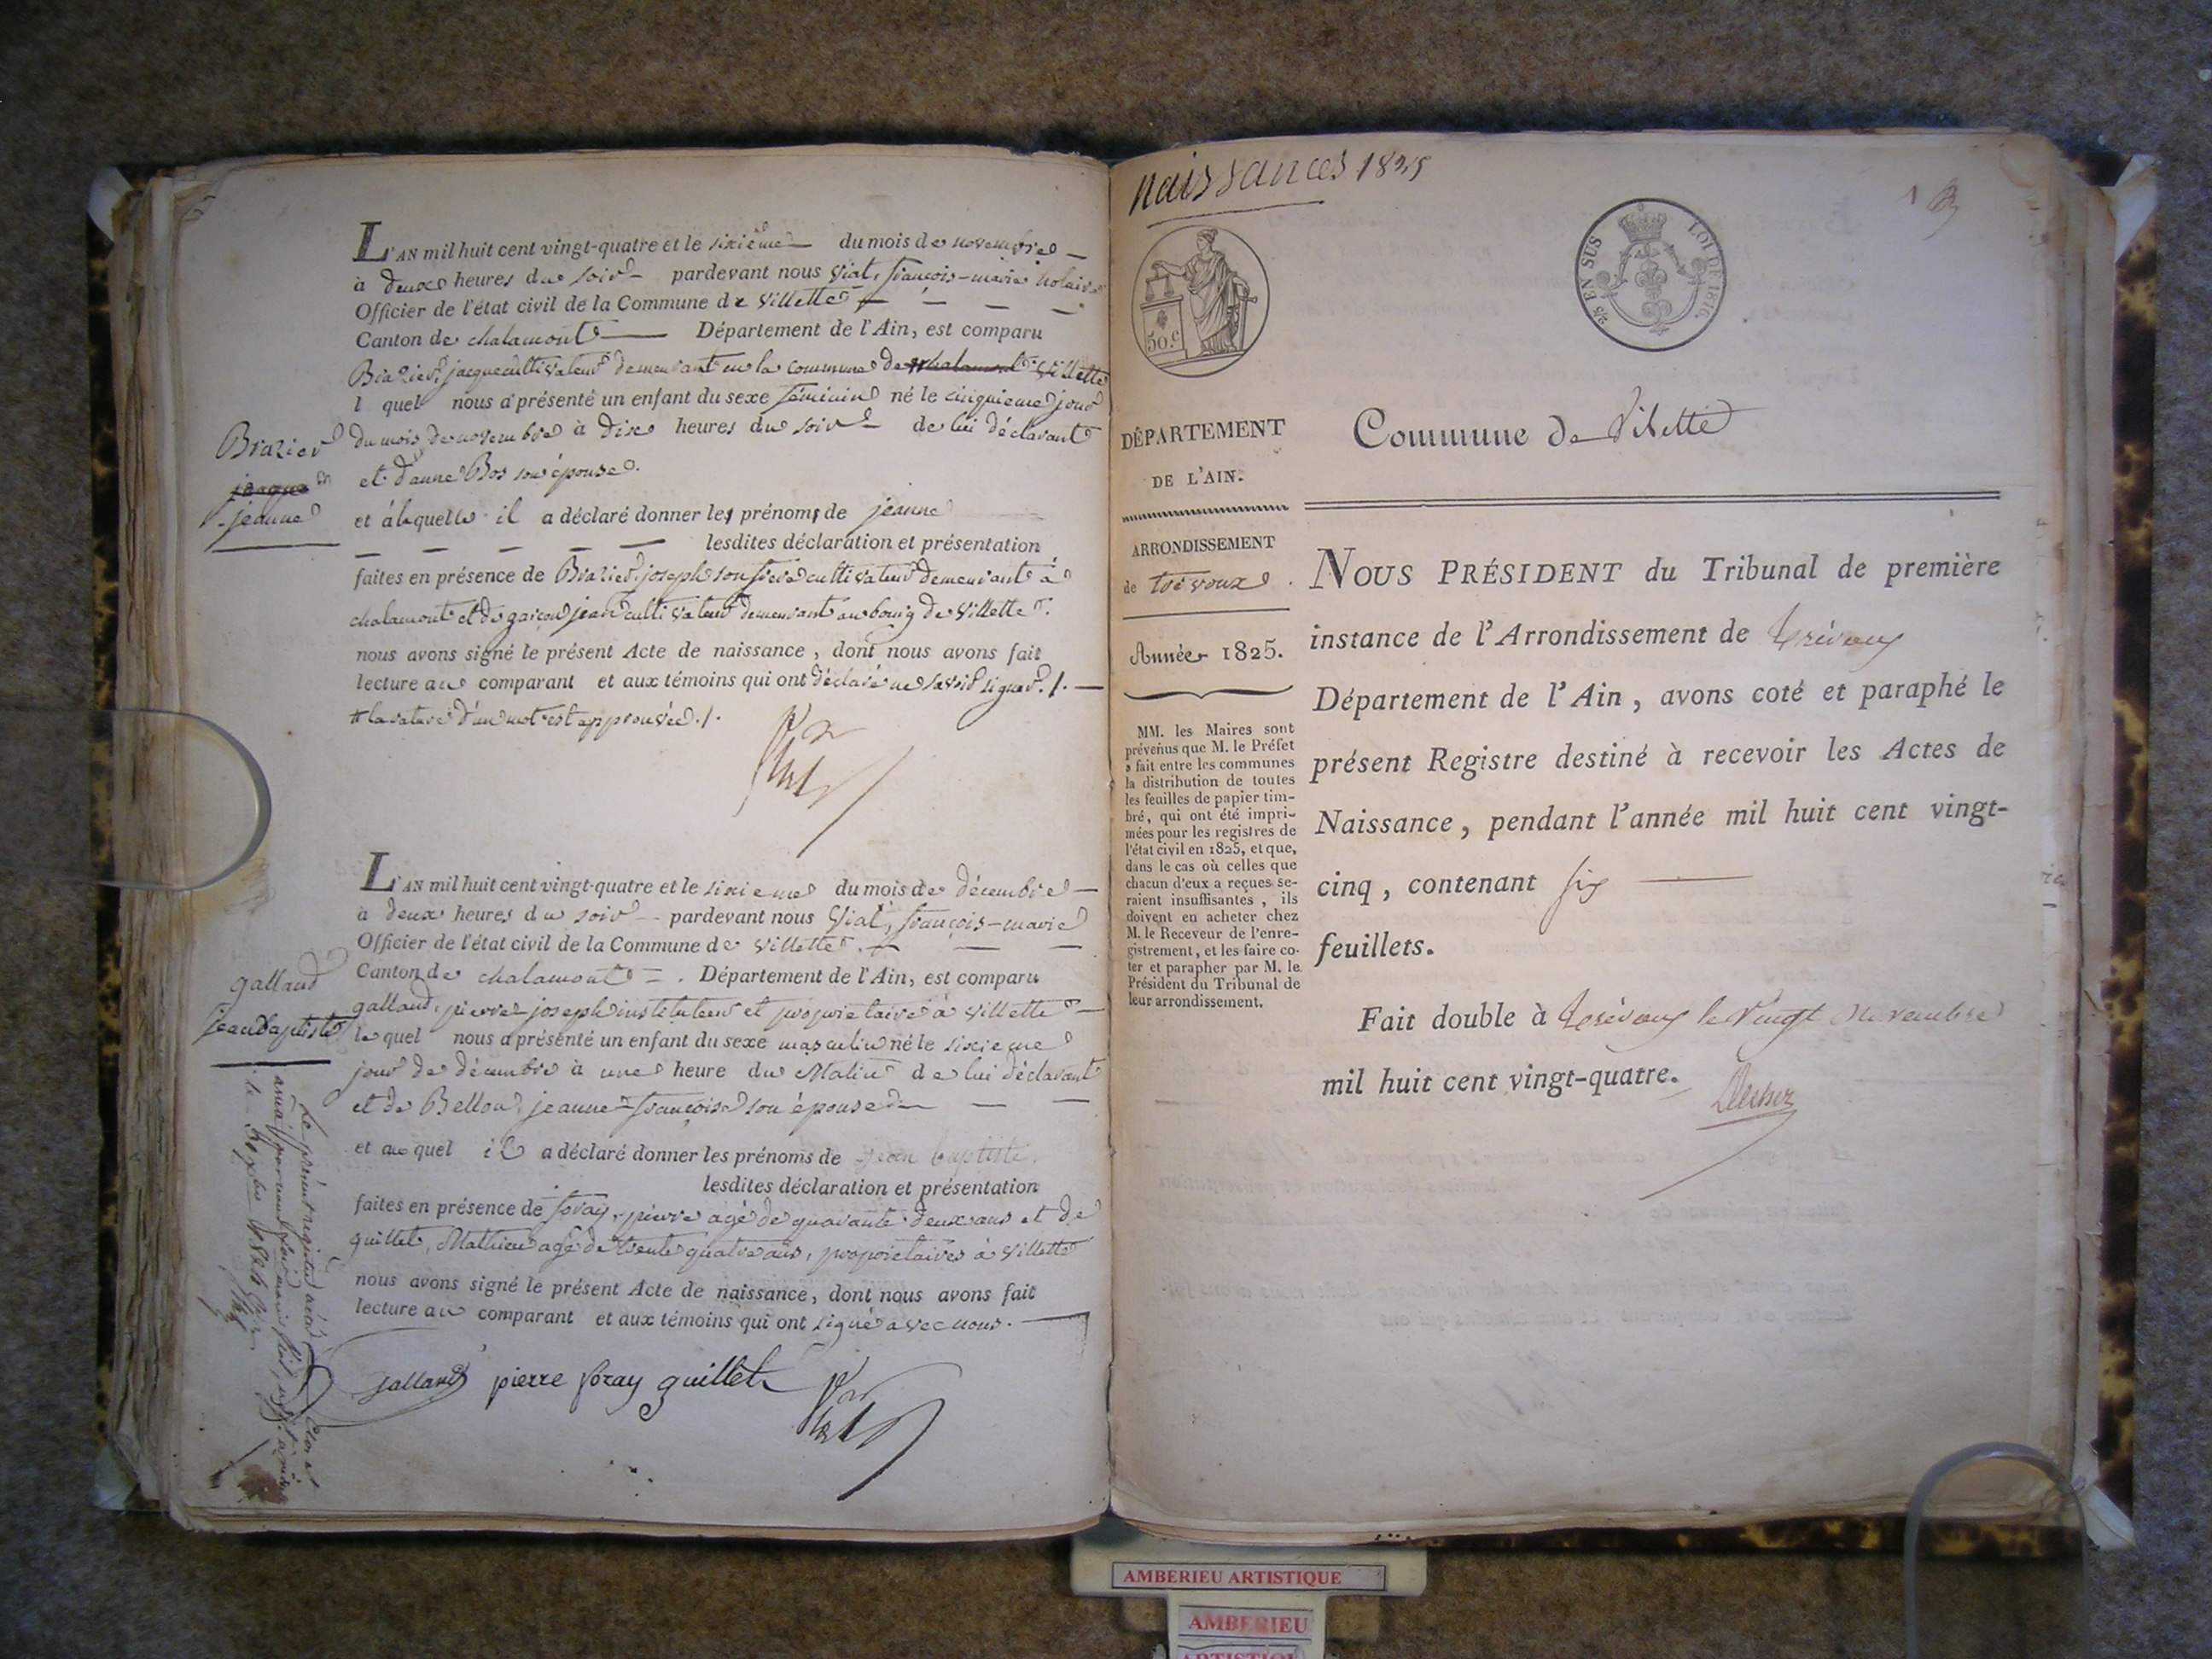 L'AN mil huit cent vingt-quatre et le sixième du mois de novembre
à deux heures du soir pardevant nous Vial, françois-marie notaire
Officier de l'état civil de la Commune de Villette
Canton de chalamont Département de l'Ain, est comparu
Brazier, jacque cultivateur demeurant en la commune de chalamont Villette
l quel nous a présenté un enfant du sexe féminin né le cinquieme jour
du mois de novembre à dix heures du soir de lui déclarant
et d'anne Bos son épouse.
Brazier
jacque
jeanne
et à laquelle il a déclaré donner les prénoms de jeanne
lesdites déclaration et présentation
faites en présence de Brazier, joseph son frere cultivateur demeurant à
chalamont et de garçon jean cultivateur demeurant au bourg de Villette.
nous avons signé le présent Acte de naissance, dont nous avons fait
lecture au comparant et aux témoins qui ont déclaré ne savoir signer./.
la rature d'un mot est approuvée./.
L'AN mil huit cent vingt-quatre et le sixieme du mois de décembre
à deux heures du soir pardevant nous Vial, françois-marie
Officier de l'état civil de la Commune de Villette
Canton de chalamont. Département de l'Ain, est comparu
galland
jean baptiste
galland, pierre-joseph instituteur et proprietaire à Villette
lequel nous a présenté un enfant du sexe masculin né le sixieme
jour de décembre à une heure du Matin de lui déclarant
et de Bellon, jeanne-françoise son épouse
et auquel il a déclaré donner les prénoms de jean baptiste.
lesdites déclaration et présentation
faites en présence de foray, pierre agé de quarante deux ans et de
guillet, Mathieu agé de trente quatre ans, proprietaires à Villette
nous avons signé le présent Acte de naissance, dont nous avons fait
lecture au comparant et aux témoins qui ont signé avec nous.
galland pierre foray guillet
Le présent registre a été clos et
naissances 1825
1
25 EN SUS
LOI DE 1816.
50.c
DÉPARTEMENT
DE L'AIN.
ARRONDISSEMENT
de trévoux
Année 1825.
MM. les Maires sont
prévenus que M. le Préfet
a fait entre les communes
la distribution de toutes
les feuilles de papier tim-
bré, qui ont été impri-
mées pour les registres de
l'état civil en 1825, et que,
dans le cas où celles que
chacun d'eux a reçues se-
raient insuffisantes, ils
doivent en acheter chez
M. le Receveur de l'enre-
gistrement, et les faire co-
ter et parapher par M. le
Président du Tribunal de
leur arrondissement.
Commune de Vilette
NOUS PRÉSIDENT du Tribunal de première
instance de l'Arrondissement de Trévoux
Département de l'Ain, avons coté et paraphé le
présent Registre destiné à recevoir les Actes de
Naissance, pendant l'année mil huit cent vingt-
cinq, contenant six
feuillets.
Fait double à Trévoux le Vingt Novembre
mil huit cent vingt-quatre.
AMBERIEU ARTISTIQUE
AMBERIEU
ARTISTIQUE